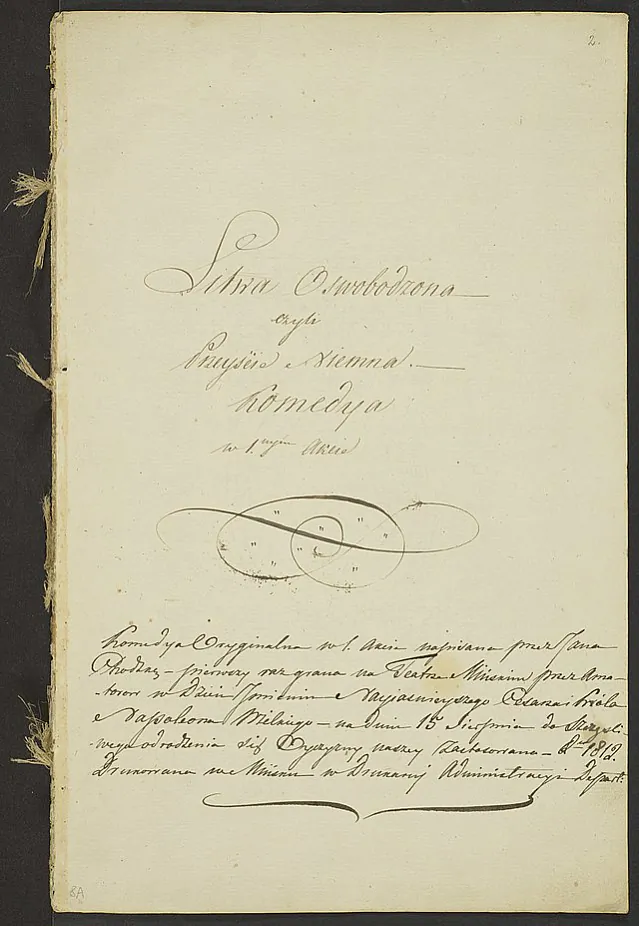 2.
Litwa Oswobodzona
czyli
Przeyście Niemna.
Komedya
w 1.nym Akcie
Komedya Oryginalna w 1. Akcie napisana przez Jana
Chodzkę – pierwszy raz grana na Teatrze Mińskim przez Ama-
-torow w Dzień Imienin Nayjaśnieyszego Cesarza i Króla
Napoleona Wielkiego – na dniu 15 Sierpnia do Szczęśli-
-wego odrodzenia się Oyczyzny naszey zastosowana – Ru 1812.
Drukowana w Mińsku w Drukarni Administracyi Depart:
8A